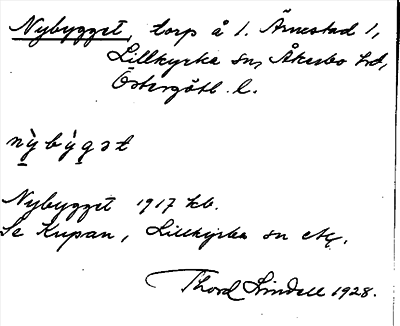 Nybygget, torp å 1. Ärnestad 1,
Lillkyrka sn, Åkerbo hd,
Östergötl. l.
nỳbẏgət
Nybygget 1917 kb.
Se Kupan, Lillkyrka sn etc.
Thord Lindell 1928.